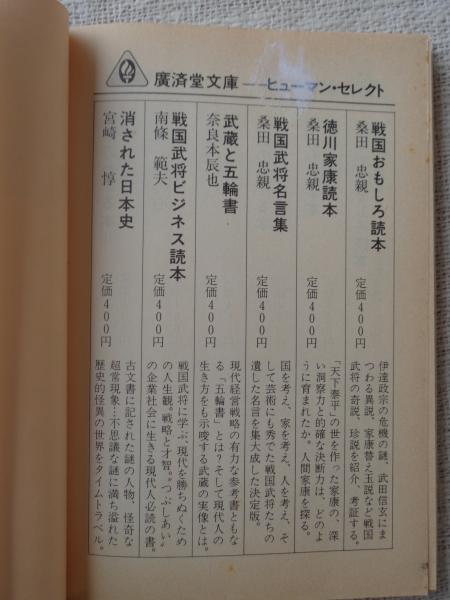 廣済堂文庫――ヒューマン・セレクト
戦国おもしろ読本
桑田 忠親
定価400円
伊達政宗の危機の謎、武田信玄にま
つわる異説、家康替え玉説など戦国
武将の奇説、珍説を紹介、考証する。
徳川家康読本
桑田 忠親
定価400円
「天下泰平」の世を作った家康の、深
い洞察力と的確な決断力は、どのよ
うに育まれたか。人間家康を探る。
戦国武将名言集
桑田 忠親
定価400円
国を考え、家を考え、人を考え、そ
して芸術にも秀でた戦国武将たちの
遺した名言を集大成した決定版。
武蔵と五輪書
奈良本辰也
定価400円
現代経営戦略の有力な参考書ともな
る「五輪書」とは？そして現代人の
生き方をも示唆する武蔵の実像とは。
戦国武将ビジネス読本
南條 範夫
定価400円
戦国武将に学ぶ、現代を勝ちぬくため
の人生観。戦略と才智。〝つぶしあい〟
の企業社会に生きる現代人必読の書。
消された日本史
宮崎 惇
定価400円
古文書に記された謎の人物、怪奇な
超常現象…不思議な謎に満ち溢れた
歴史的怪異の世界をタイムトラベル。